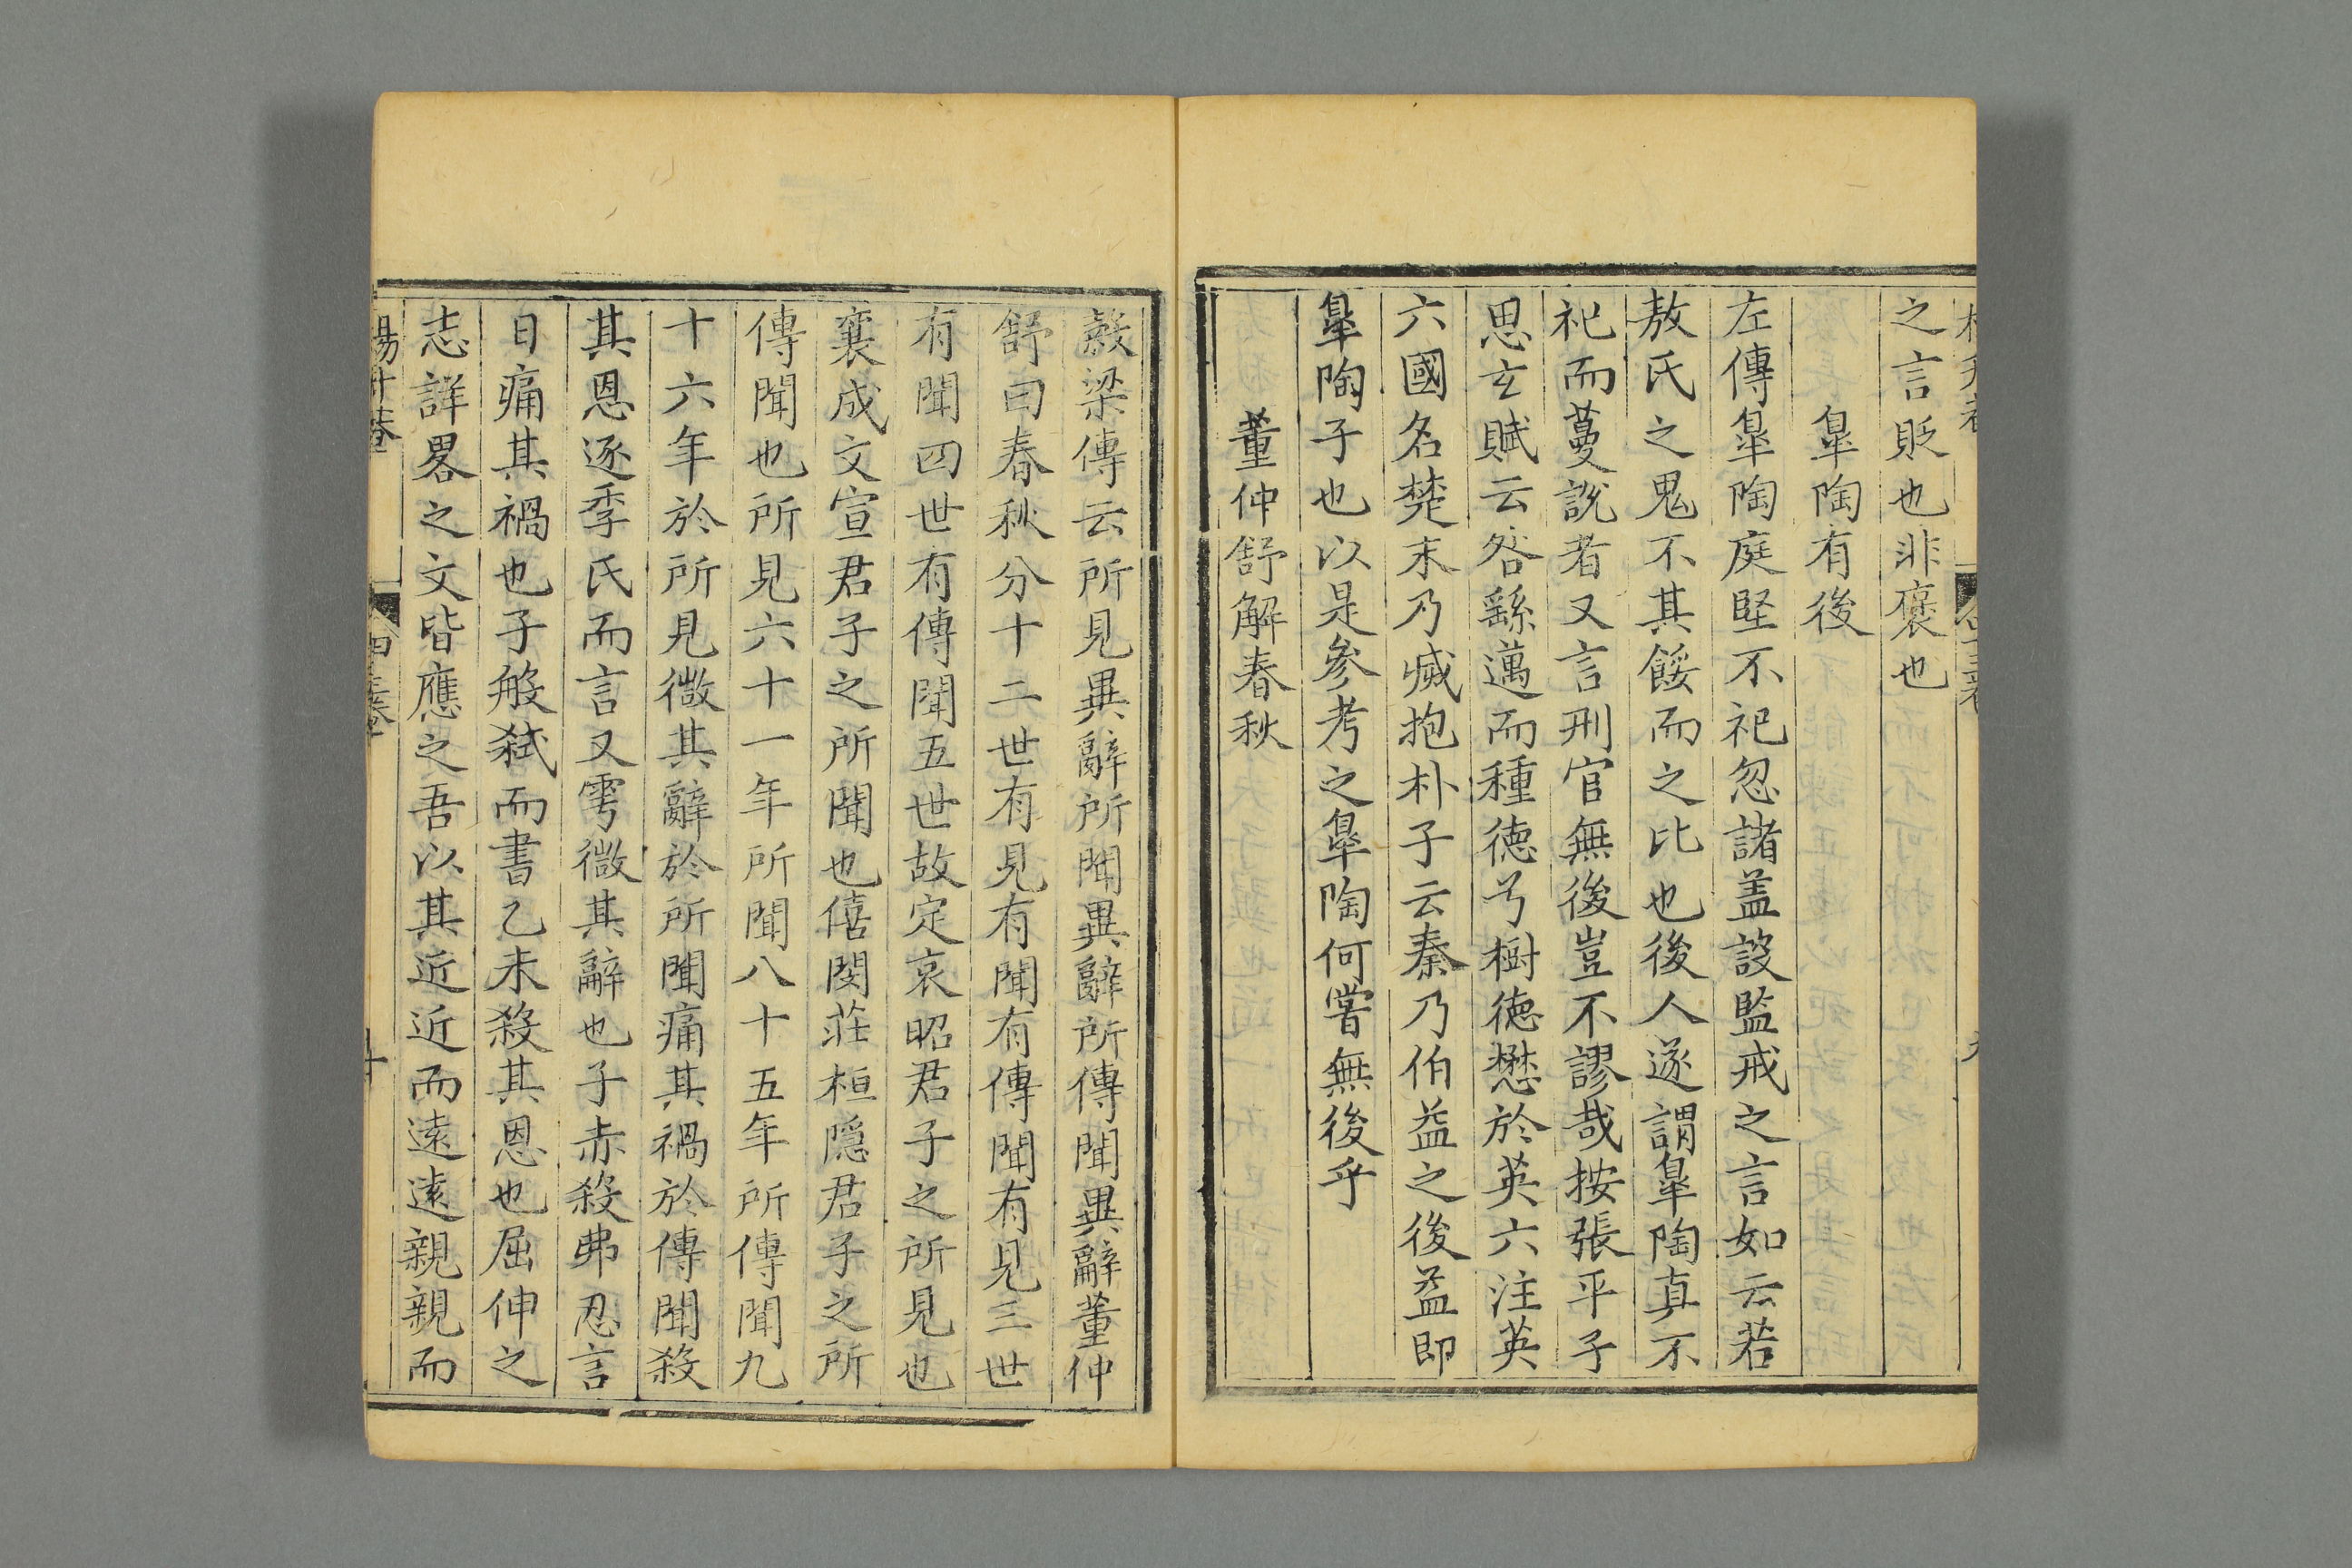 之言貶也非褒也
臯陶有後
左傳臯陶庭堅不祀忽諸盖設監戒之言如云若
敖氏之鬼不其餒而之比也後人遂謂臯陶真不
祀而蔓說者又言刑官無後豈不謬哉按張平子
思玄賦云咎繇邁而種徳兮樹徳懋於英六注英
六國名楚末乃滅抱朴子云秦乃伯益之後益即
臯陶子也以是參考之臯陶何甞無後乎
董仲舒解春秋
榖梁傳云所見異辭所聞異辭所傳聞異辭董仲
舒曰春秋分十二世有見有聞有傳聞有見三世
有聞四世有傳聞五世故定哀昭君子之所見也
襄成文宣君子之所聞也僖閔莊桓隠君子之所
傳聞也所見六十一年所聞八十五年所傳聞九
十六年於所見微其辭於所聞痛其禍於傳聞殺
其恩逐季氏而言又雩微其辭也子赤殺弗忍言
日痛其禍也子般弑而書乙未殺其恩也屈伸之
志詳畧之文皆應之吾以其近近而遠遠親親而